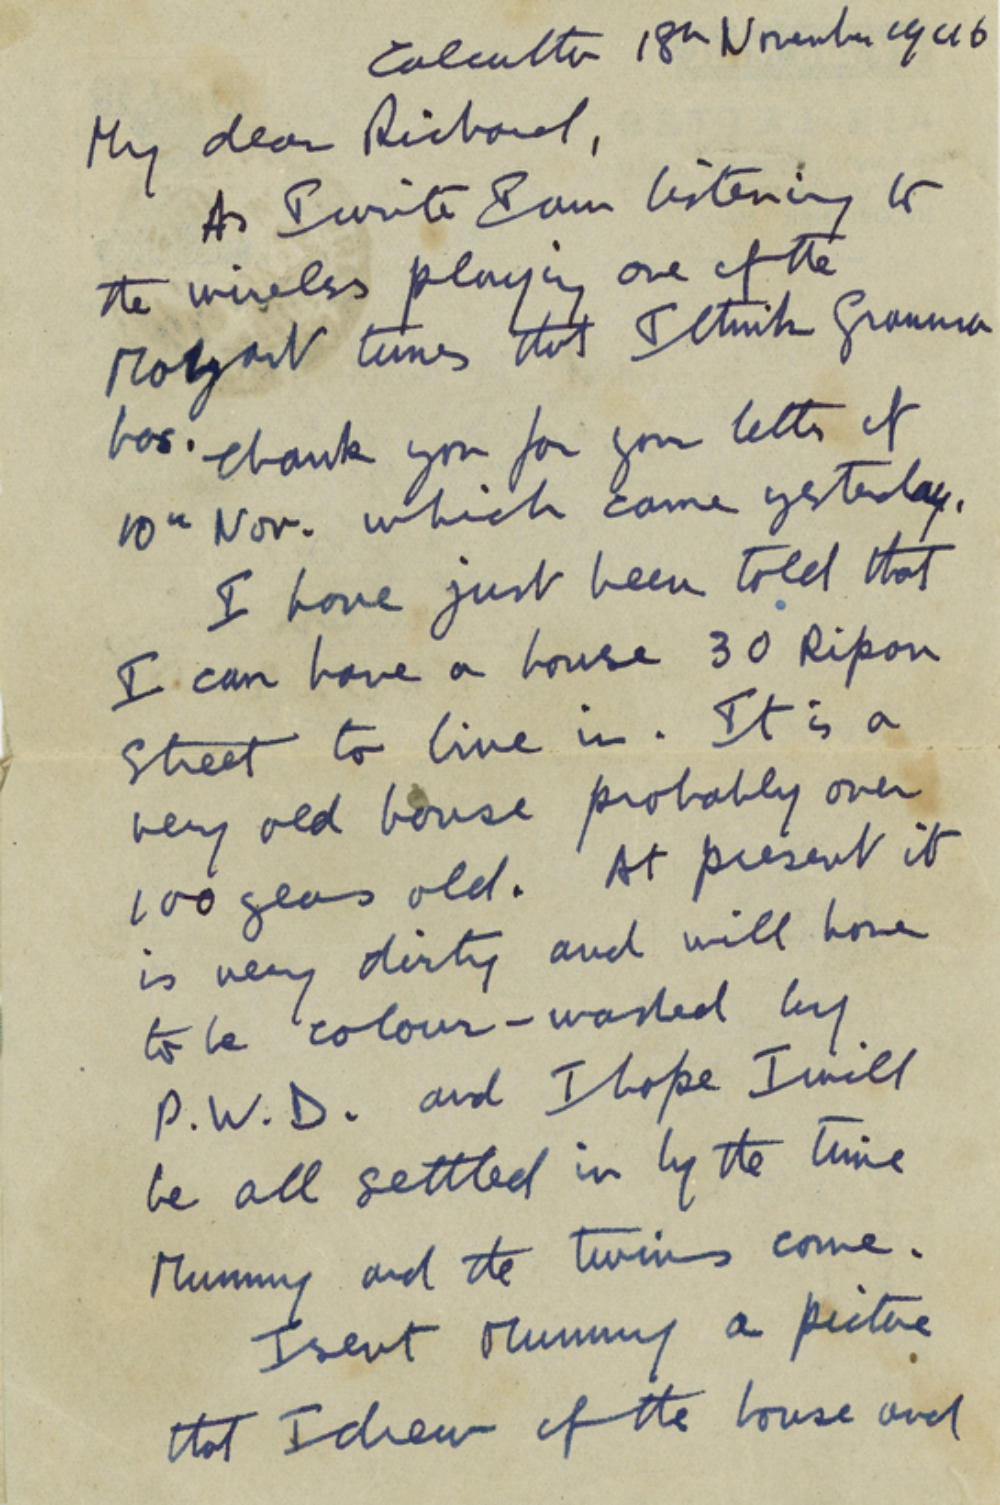 Calcutta 18th November 1946
My dear Richard,
As I write I am listening to
the wireless playing one of the
Mozart tunes that I think Granma
has. Thank you for your letter of
10th Nov. which came yesterday.
I have just been told that
I can have a house 30 Ripon
Street to live in. It is a
very old house probably over
100 years old. At present it
is very dirty and will have
to be colour-washed by
P.W.D. and I hope I will
be all settled in by the time
Mummy and the twins come.
I sent Mummy a picture
that I drew of the house and